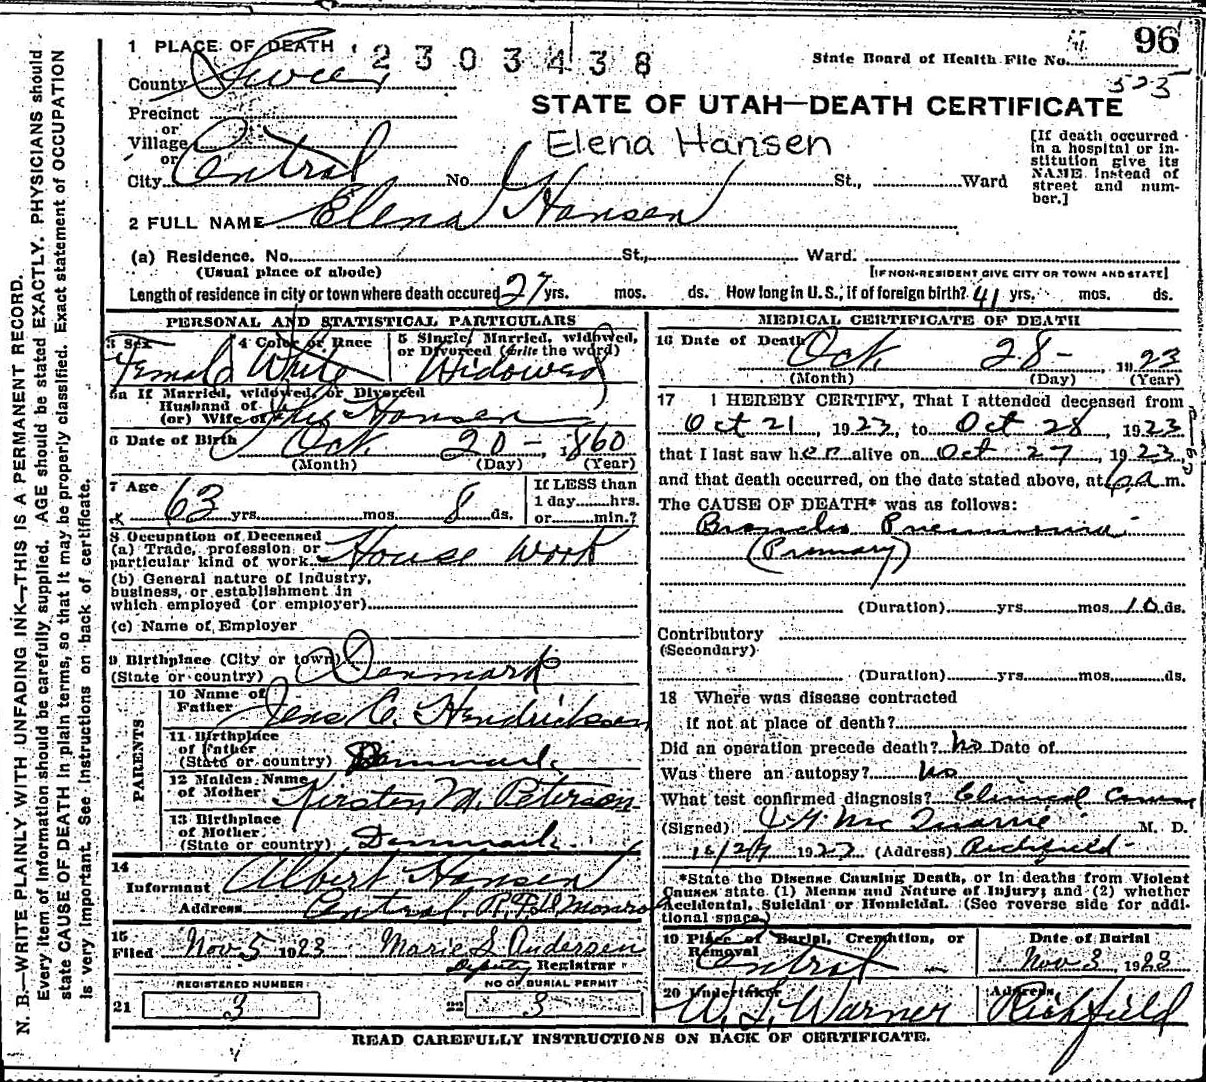 96
State Board of Health File No.
523
1 PLACE OF DEATH
2303438
County Sevier
STATE OF UTAH—DEATH CERTIFICATE
Precinct
or
Village
or
City Central No. St., Ward
Elena Hansen
[If death occurred
in a hospital or in-
stitution give its
NAME instead of
street and num-
ber.]
2 FULL NAME Elena Hansen
(a) Residence. No. St., Ward.
(Usual place of abode) [IF NON-RESIDENT GIVE CITY OR TOWN AND STATE]
Length of residence in city or town where death occured 27 yrs. mos. ds. How long in U. S., if of foreign birth? 41 yrs. mos. ds.
PERSONAL AND STATISTICAL PARTICULARS
3 Sex 4 Color or Race 5 Single, Married, widowed,
or Divorced (write the word)
Female White Widowed
5a If Married, widowed, or Divorced
Husband of
(or) Wife of Hansen
6 Date of Birth Oct. 20 - 1860
(Month) (Day) (Year)
7 Age 63 yrs. mos. 8 ds.
If LESS than
1 day hrs.
or min.?
8 Occupation of Deceased
(a) Trade, profession or
particular kind of work House Work
(b) General nature of Industry,
business, or establishment in
which employed (or employer)
(c) Name of Employer
9 Birthplace (City or town)
(State or country) Denmark
PARENTS
10 Name of
Father Jens C. Hendricksen
11 Birthplace
of Father
(State or country) Denmark.
12 Maiden Name
of Mother Kirsten M. Peterson
13 Birthplace
of Mother
(State or country) Denmark.
14
Informant Albert Hansen
Address Central, R.F.D. Monroe
15
Filed Nov 5 1923 Marie S. Andersen
Deputy Registrar
REGISTERED NUMBER NO OF BURIAL PERMIT
21 3 22 3
MEDICAL CERTIFICATE OF DEATH
16 Date of Death Oct. 28 - 1923
(Month) (Day) (Year)
17 I HEREBY CERTIFY, That I attended deceased from
Oct 21, 1923, to Oct 28, 1923
that I last saw her alive on Oct 27, 1923,
and that death occurred, on the date stated above, at 6 a.m.
The CAUSE OF DEATH* was as follows:
Broncho Pneumonia
(Primary)
(Duration) yrs. mos. 10 ds.
Contributory
(Secondary)
(Duration) yrs. mos. ds.
18 Where was disease contracted
if not at place of death?
Did an operation precede death? No Date of
Was there an autopsy? No
What test confirmed diagnosis? Clinical
(Signed) Mc Quarrie M. D.
1923 (Address) Richfield
*State the Disease Causing Death, or in deaths from Violent
Causes state (1) Means and Nature of Injury; and (2) whether
Accidental, Suicidal or Homicidal. (See reverse side for addi-
tional space.)
19 Place of Burial, Cremation, or
Removal Central
Date of Burial
Nov 3 1923
20 Undertaker W. L. Warner
Address Richfield
READ CAREFULLY INSTRUCTIONS ON BACK OF CERTIFICATE.
N. B.—WRITE PLAINLY WITH UNFADING INK—THIS IS A PERMANENT RECORD.
Every item of Information should be carefully supplied. AGE should be stated EXACTLY. PHYSICIANS should
state CAUSE OF DEATH in plain terms, so that it may be properly classified. Exact statement of OCCUPATION
is very important. See instructions on back of certificate.